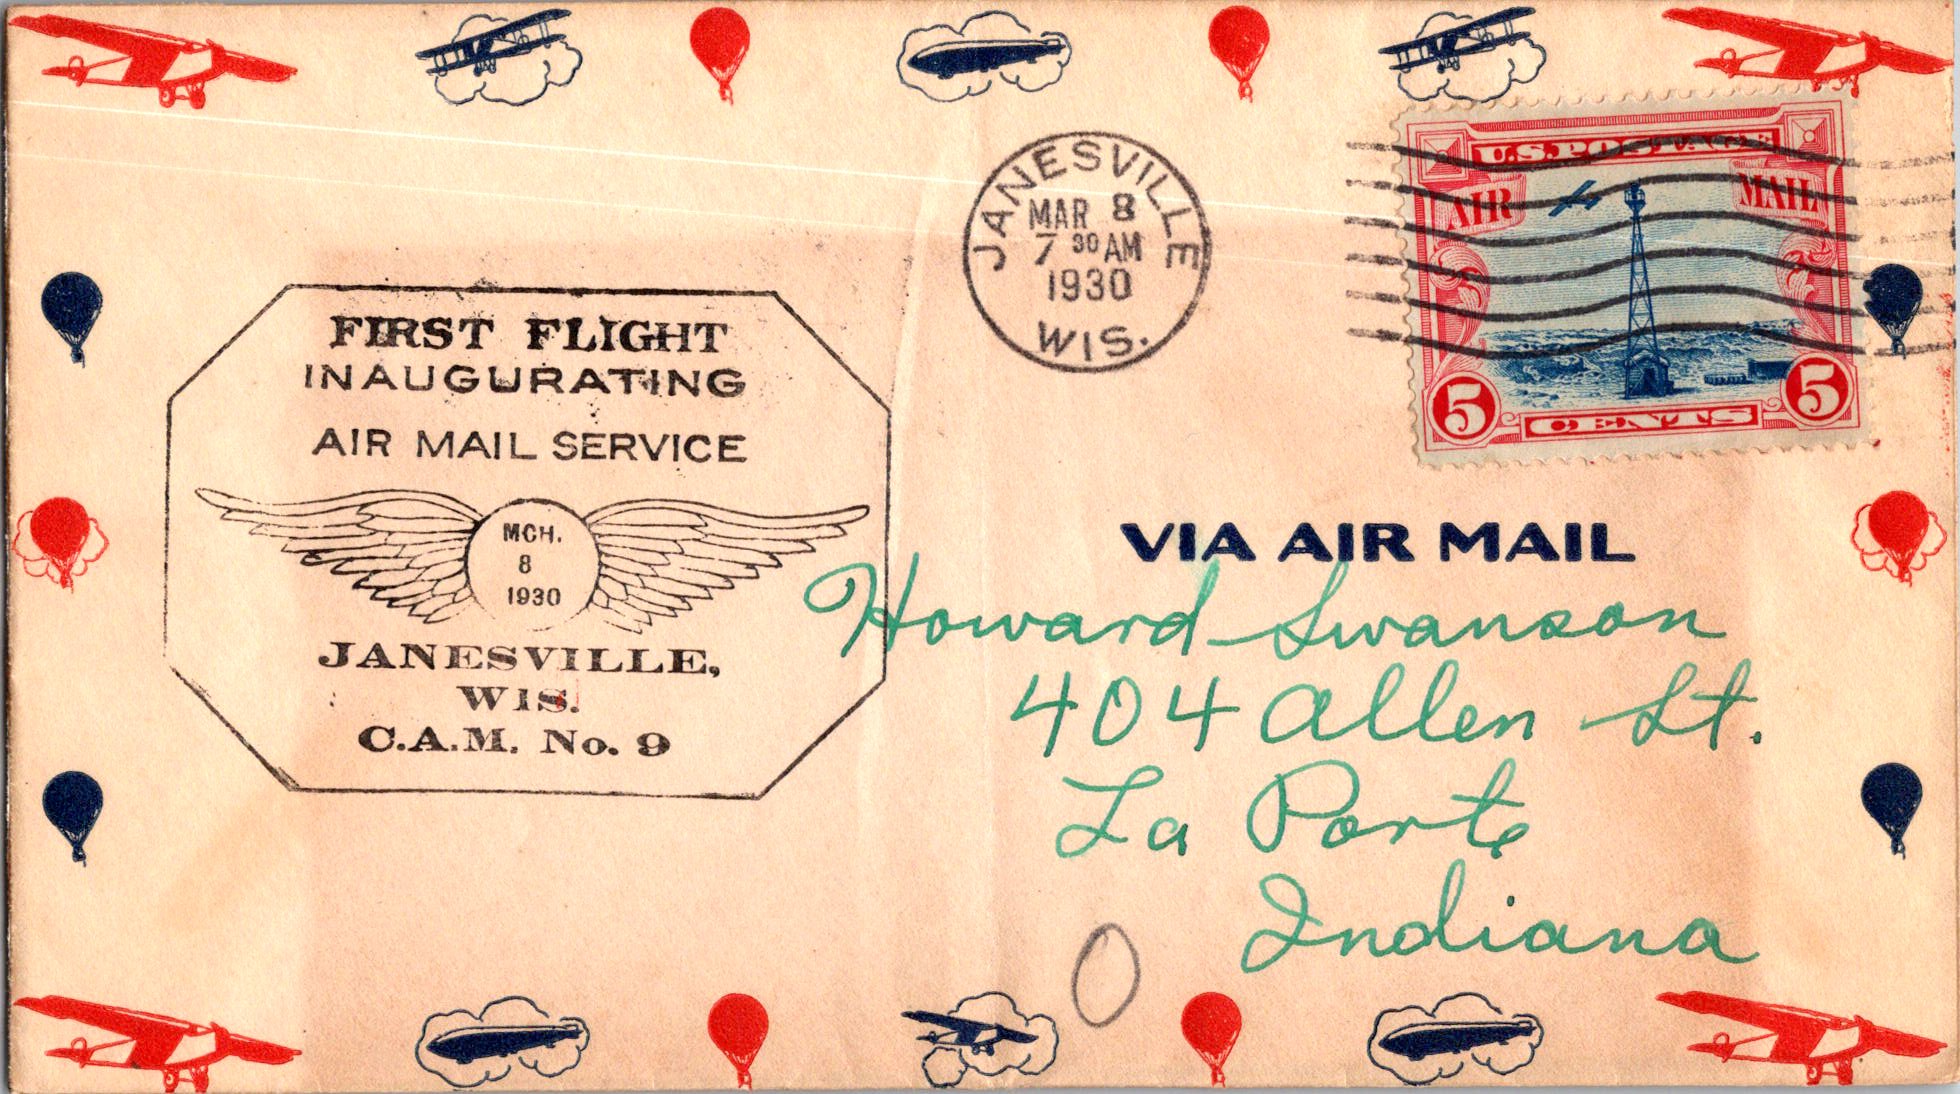 JANESVILLE
MAR 8
7 30 AM
1930
WIS.
U.S. POSTAGE
AIR MAIL
5 CENTS 5
FIRST FLIGHT
INAUGURATING
AIR MAIL SERVICE
MCH.
8
1930
JANESVILLE,
WIS.
C.A.M. No. 9
VIA AIR MAIL
Howard Swanson
404 Allen St.
La Porte
Indiana
0